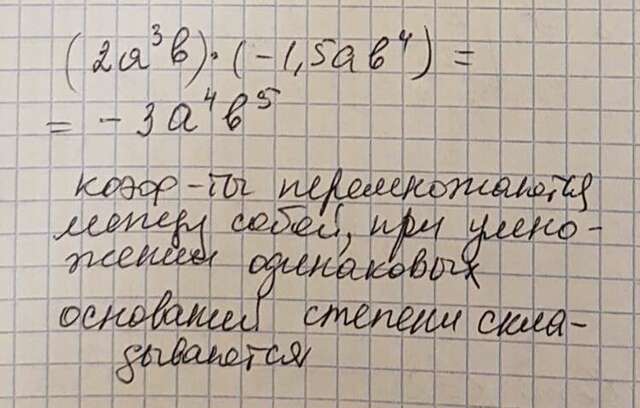 (2a³b)·(-1,5ab⁴) =
= - 3a⁴b⁵
коэф-ты перемножаются
между собой, при умно-
жении одинаковых
оснований степени скла-
дываются